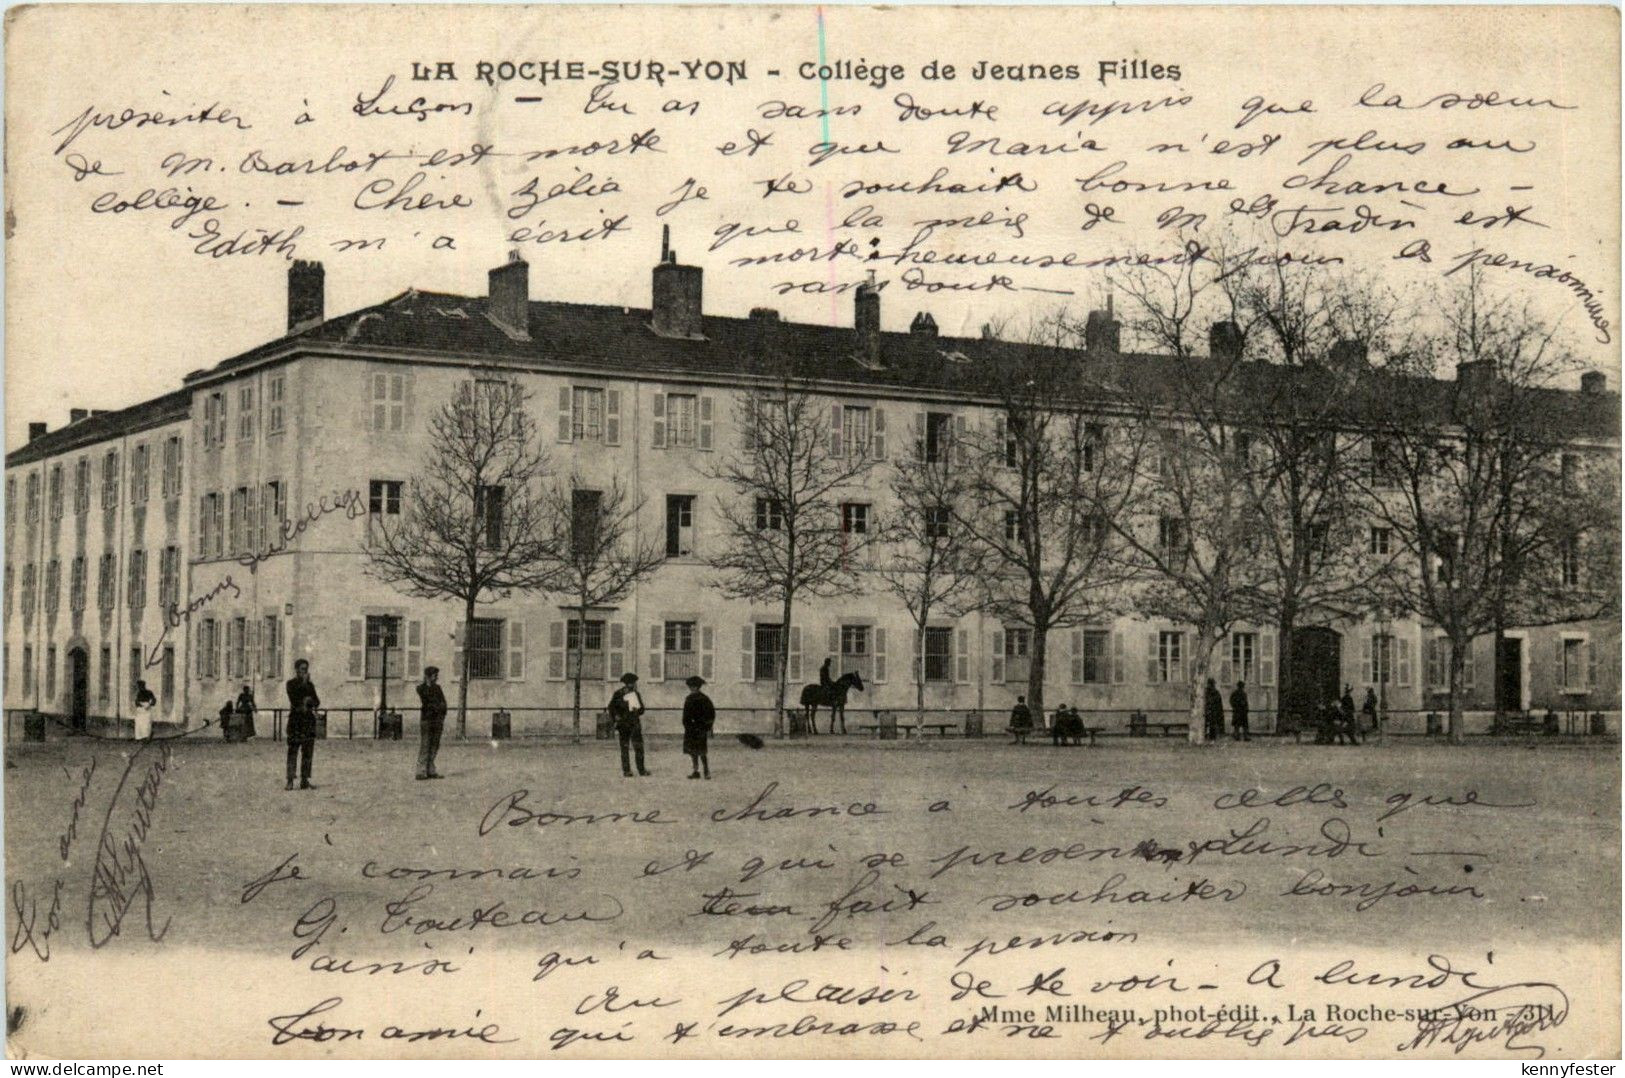 LA ROCHE-SUR-YON - Collège de Jeunes Filles
présenter à Luçon - Tu as sans doute appris que la sœur
de M. Barbot est morte et que Maria n'est plus au
collège. - Chère Zélia je te souhaite bonne chance -
Edith m'a écrit que la mère de Melle est
morte : heureusement pour les pensionnaires
sans doute -
Bonne du Collège
Bonne chance à toutes celles que
je connais et qui se Lundi -
G. Touteau fait souhaiter bonjour
ainsi qu'à toute la pension
Au plaisir de te voir - A lundi
Ton amie qui t'embrasse et ne t'oublie pas
Ton amie
Mme Milheau, phot-édit., La Roche-sur-Yon - 311
kennyfester